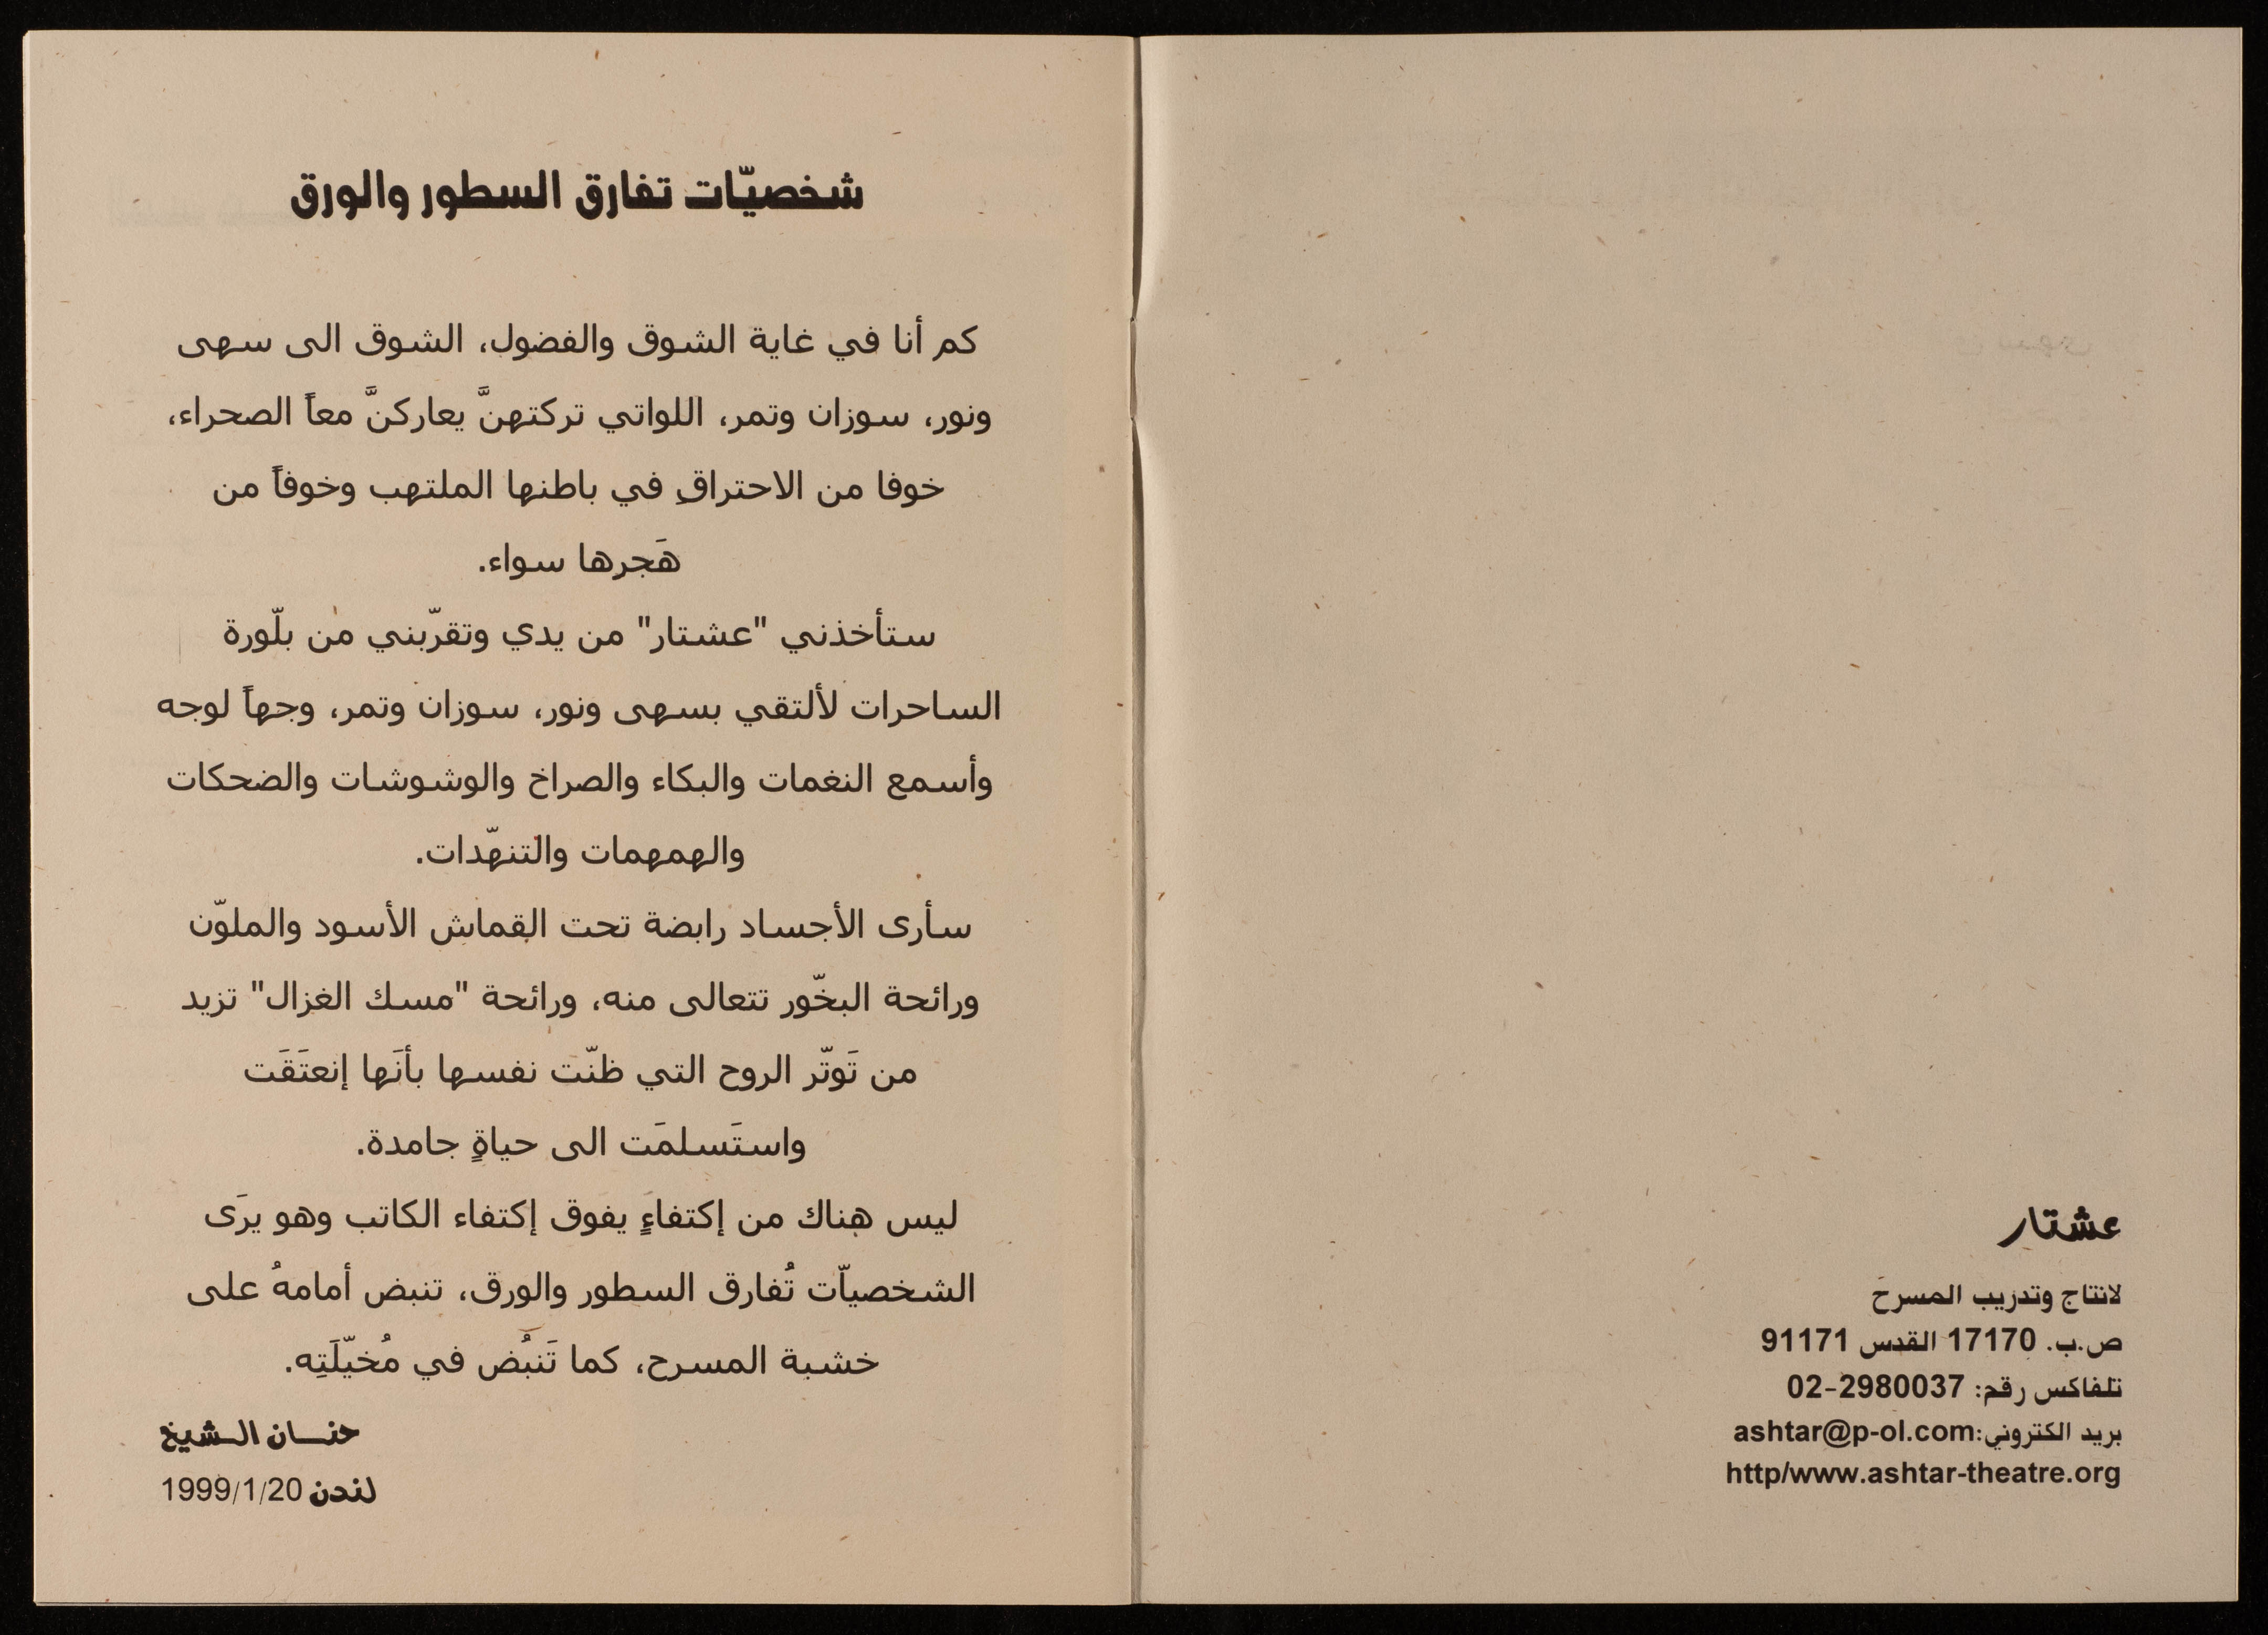 عشتار
لانتاج وتدريب المسرح
ص.ب. 17170 القدس 91171
تلفاكس رقم: 2980037-02
بريد الكتروني:ashtar@p-ol.com
http/www.ashtar-theatre.org
شخصيّات تفارق السطور والورق
كم أنا في غاية الشوق والفضول، الشوق الى سهى
ونور، سوزان وتمر، اللواتي تركتهنَّ يعاركنَّ معاً الصحراء،
خوفا من الاحتراقِ في باطنها الملتهب وخوفاً من
هَجرها سواء.
ستأخذني "عشتار" من يدي وتقرّبني من بلّورة
الساحرات لألتقي بسهى ونور، سوزان وتمر، وجهاً لوجه
وأسمع النغمات والبكاء والصراخ والوشوشات والضحكات
والهمهمات والتنهّدات.
سأرى الأجساد رابضة تحت القماش الأسود والملوّن
ورائحة البخّور تتعالى منه، ورائحة "مسك الغزال" تزيد
من تَوتّر الروح التي ظنّت نفسها بأنَها إنعتَقَت
واستَسلمَت الى حياةٍ جامدة.
ليس هناك من إكتفاءٍ يفوق إكتفاء الكاتب وهو يرَى
الشخصياّت تُفارق السطور والورق، تنبض أمامهُ على
خشبة المسرح، كما تَنبُض في مُخيّلَتِه.
حنـــان الــشيخ
لندن 1999/1/20